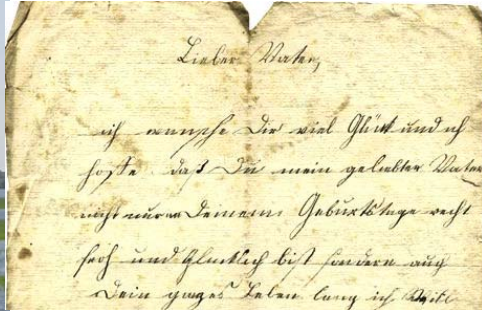 Lieber Vater,
ich wunsche Dir viel Glück und ich
hoffe daß Du mein geliebter Vater
nicht nur an Deinem Geburtstage recht
froh und Glücklich bist sondern auch
Dein ganzes Leben lang ich